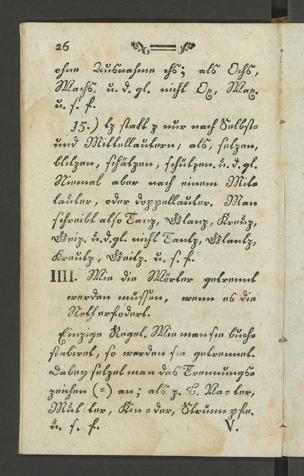 26
ohne Ausnahme chs; als Ochs,
Wachs. u. d. gl. nicht Ox, Wax.
u. s. f.
15.) tz statt z nur nach Selbst-
und Mittellautern; als, setzen,
blitzen, schätzen, schützen. u. d. gl.
Niemal aber nach einem Mit-
lauter, oder doppellauter. Man
schreibt also Tanz, Glanz, Kreuz,
Geiz. u. d. gl. nicht Tantz, Glantz,
Kreutz, Geitz. u. s. f.
IIII. Wie die Wörter getrennt
werden müssen, wenn es die
Noth erfodert.
Einzige Regel. Wie man sie buch-
stabiret, so werden sie getrennet.
Dabey setzet man das Trennungs-
zeichen (=) an; als z. B. Va=ter,
Mut ter, Kin=der, Strüm=pfe.
u. s. f. V.